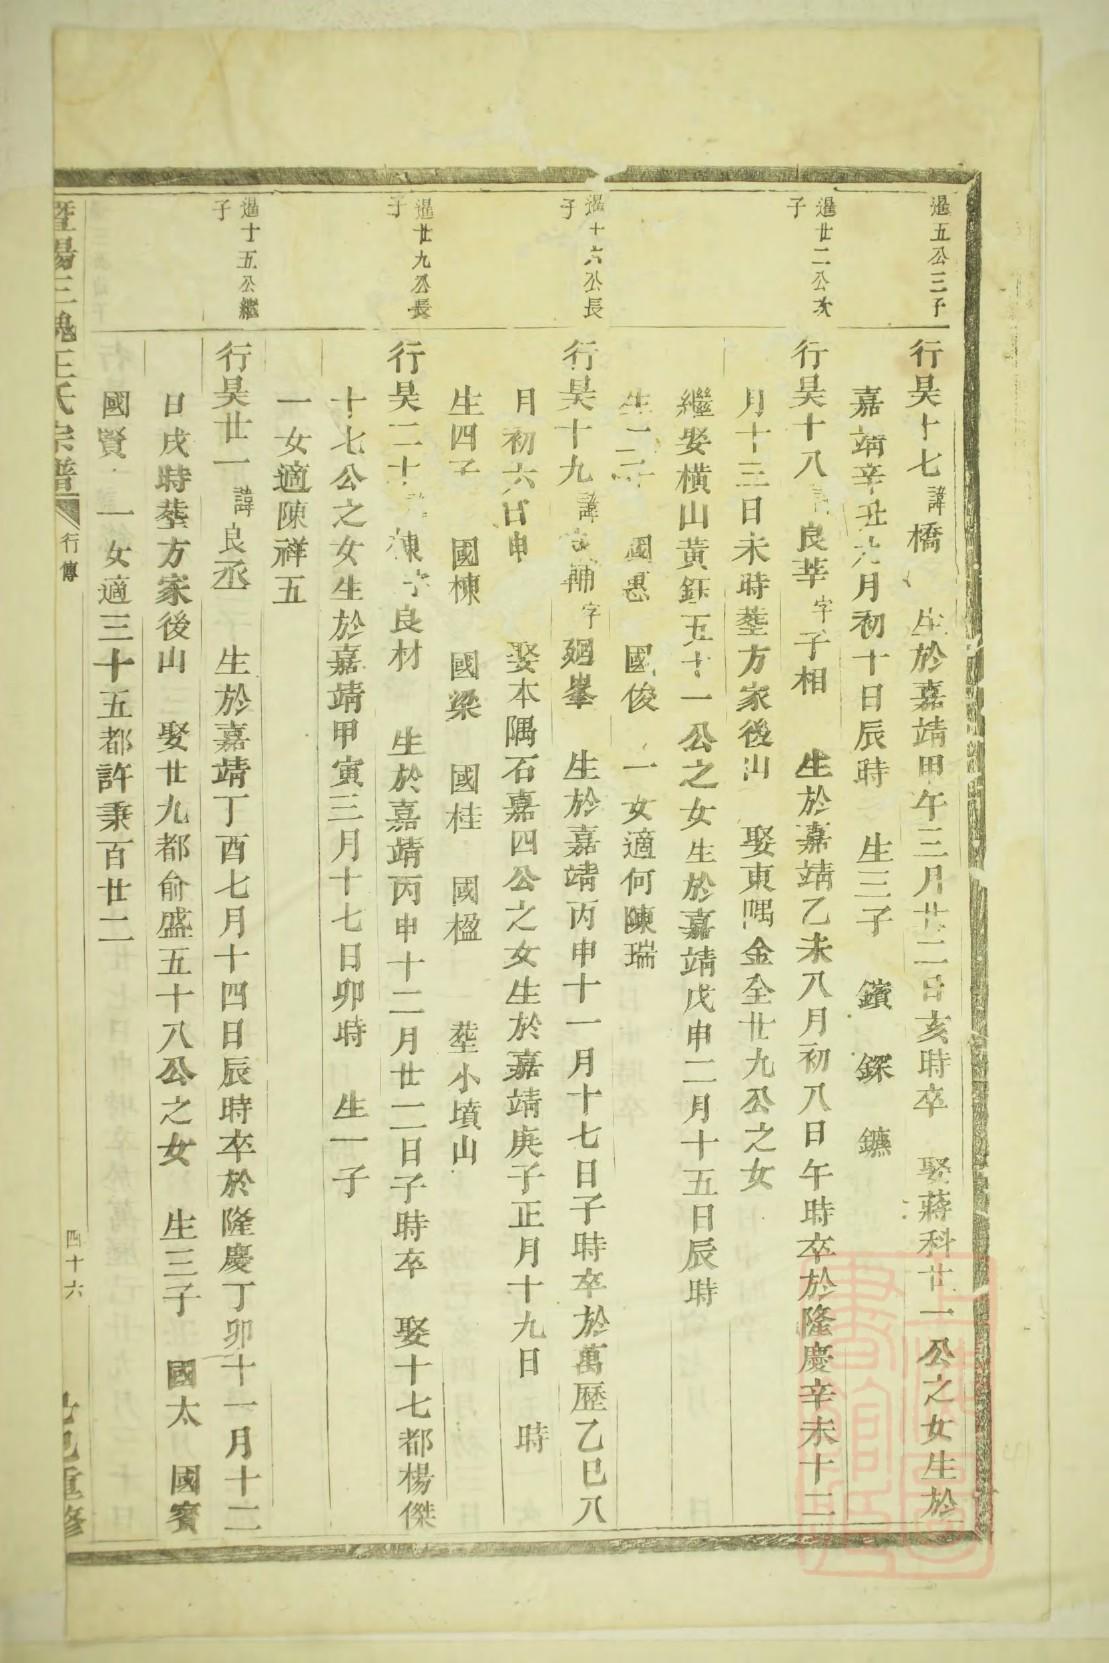 暹五公三子
行昊十七諱橋 生於嘉靖甲午三月廿二日亥時卒 娶蔣科廿一公之女生於
嘉靖辛丑九月初十日辰時 生三子 鑌 鏼 鑣
暹廿二公次子
行昊十八諱良莘字子相 生於嘉靖乙未八月初八日午時卒於隆慶辛未十二
月十三日未時塟方家後山 娶東隅金全廿九公之女
繼娶橫山黃鈺五十一公之女生於嘉靖戊申二月十五日辰時
生二子 國惠 國俊 一女適何陳瑞
暹十六公長子
行昊十九諱良輔字廻峯 生於嘉靖丙申十一月十七日子時卒於萬歷乙巳八
月初六日申 娶本隅石嘉四公之女生於嘉靖庚子正月十九日 時
生四子 國棟 國梁 國桂 國楹 塟小墳山
暹廿九公長子
行昊二十諱棟字良材 生於嘉靖丙申十二月廿二日子時卒 娶十七都楊傑
十七公之女生於嘉靖甲寅三月十七日卯時 生一子
一女適陳祥五
暹十五公繼子
行昊廿一諱良丞 生於嘉靖丁酉七月十四日辰時卒於隆慶丁卯十一月十二
日戌時塟方家後山 娶廿九都俞盛五十八公之女 生三子 國太 國賓
國賢 一女適三十五都許秉百廿二
暨陽三槐王氏宗譜 行傳 四十六 乙巳重修
上海圖書館藏